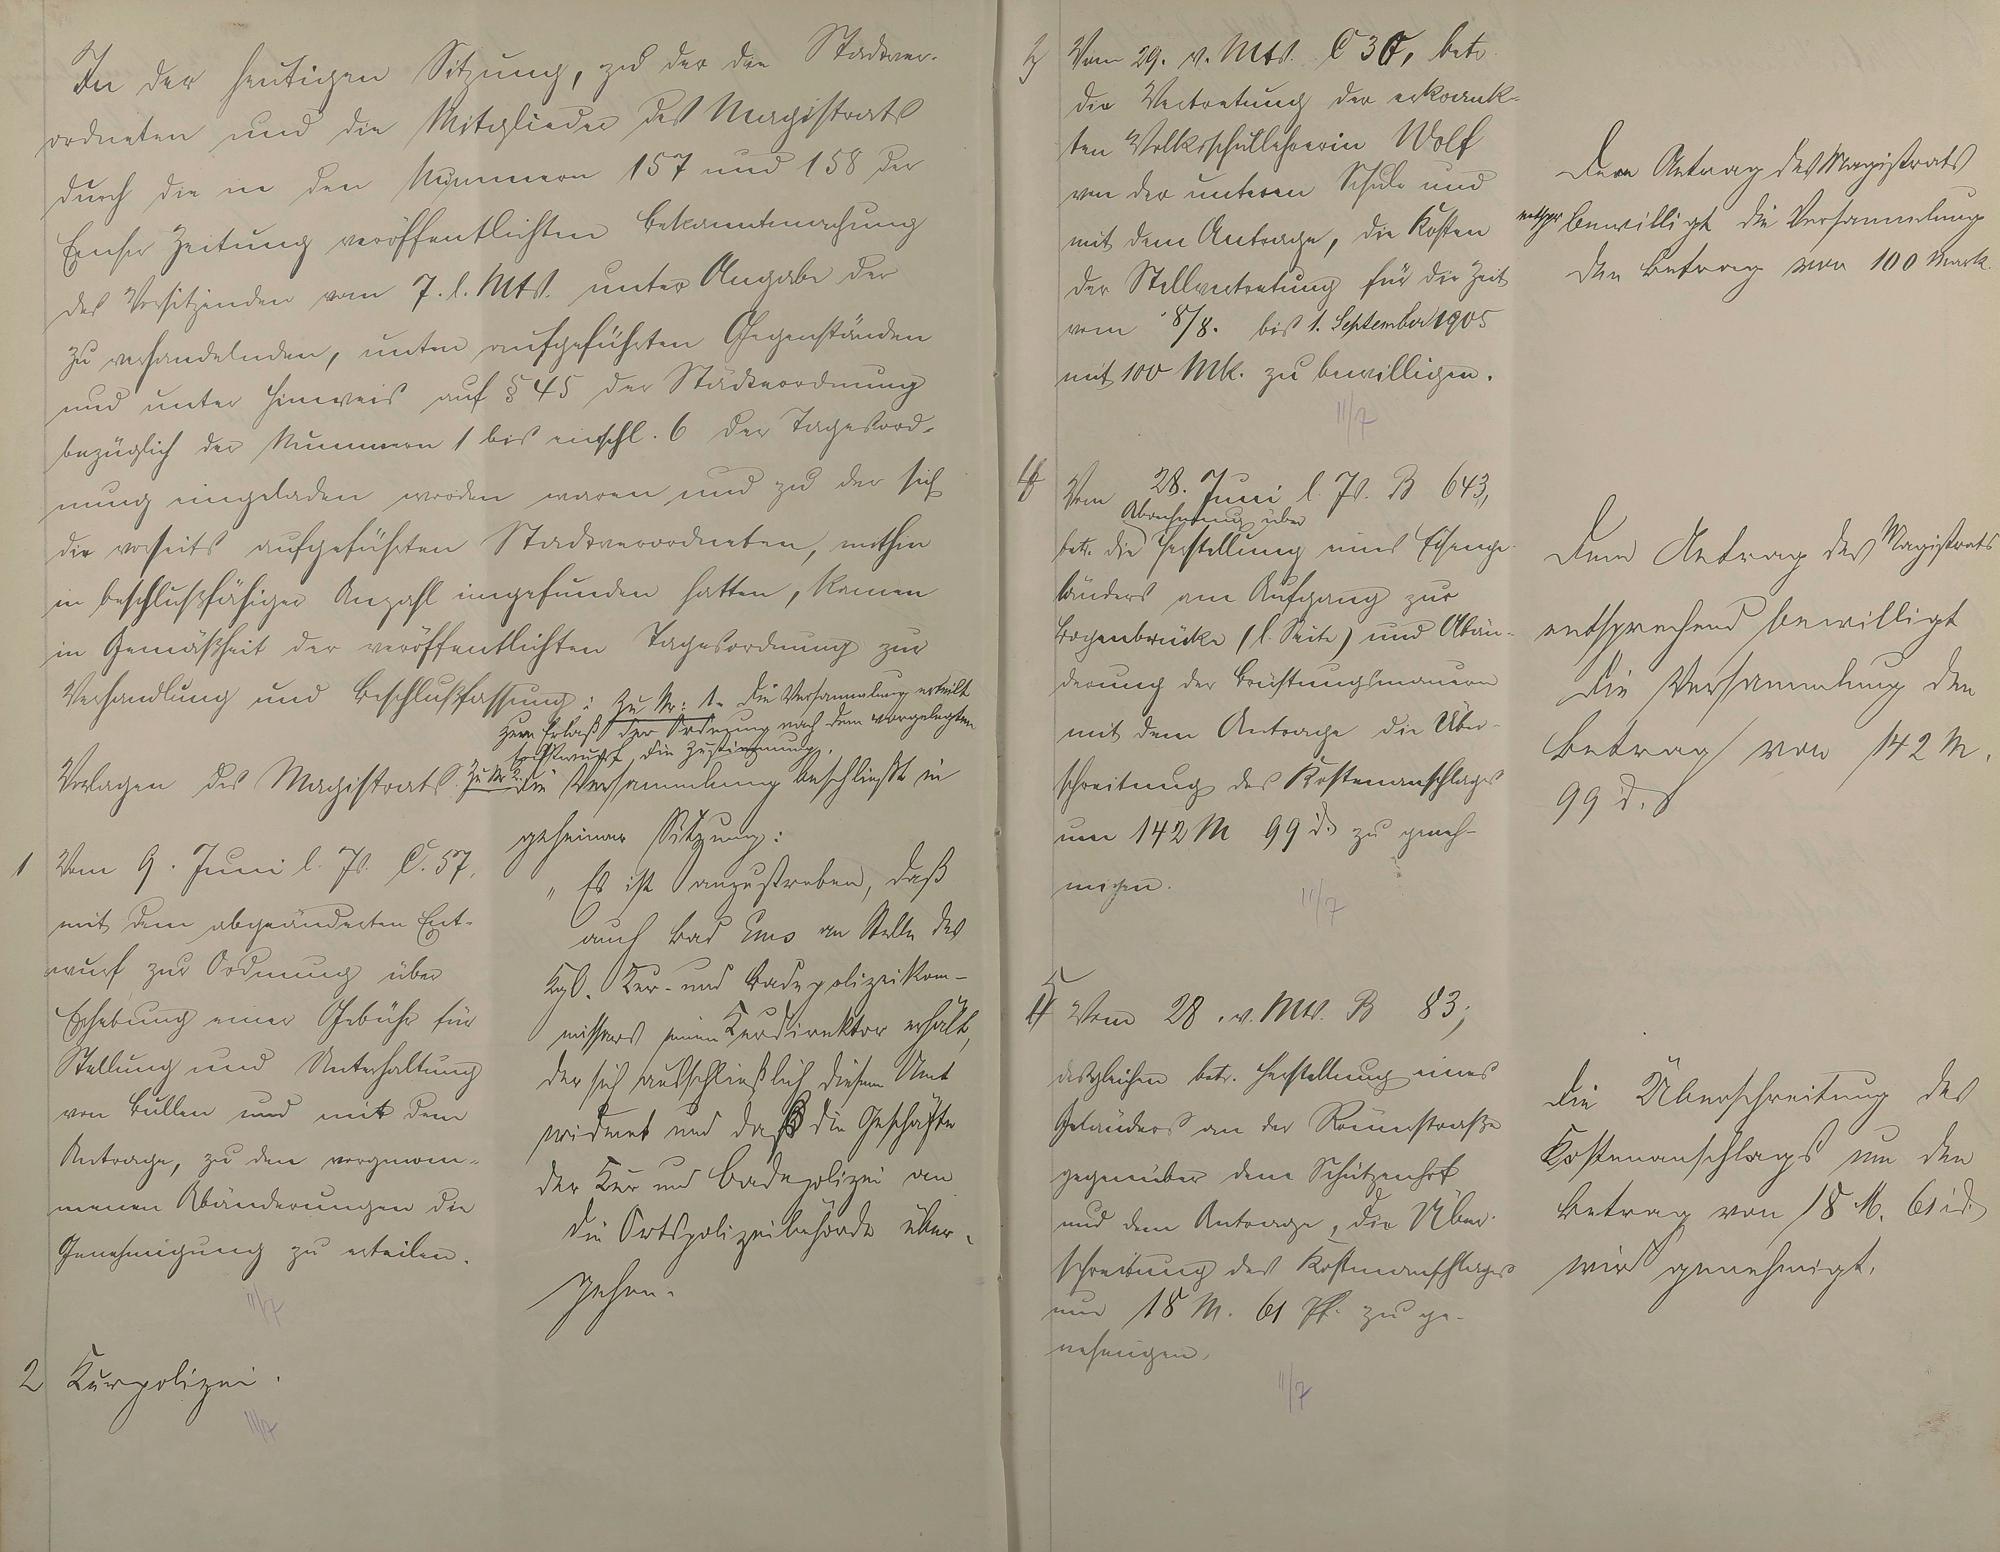 In der heutigen Sitzung, zu der die Stadtver-
ordneten und die Mitglieder des Magistrats
durch die in den Nummern 157 und 158 der
Emser Zeitung veröffentlichten Bekanntmachung
des Vorsitzenden vom 7. l. Mts. unter Angabe der
zu verhandelnden, unten aufgeführten Gegenständen
und unter Hinweis auf § 45 der Städteordnung
bezüglich der Nummern 1 bis einschl. 6 der Tagesord-
nung eingeladen worden waren und zu der sich
die vorseits aufgeführten Stadtverordneten, mithin
in beschlußfähiger Anzahl eingefunden hatten, kamen
in Gemäßheit der veröffentlichten Tagesordnung zur
Verhandlung und Beschlußfassung:
Vorlagen des Magistrats.
1 Vom 9. Juni l. Js. C. 57,
mit dem abgeänderten Ent-
wurf zur Ordnung über
Erhebung einer Gebühr für
Stellung und Unterhaltung
von Bullen und mit dem
Antrage, zu den vorgenom-
menen Abänderungen die
Genehmigung zu erteilen.
11/7
2 Kurpolizei.
11/7
Zu Nr: 1. Die Versammlung erteilt
zum Erlaß der Ordnung nach dem vorgelegten
Entwurf die Zustimmung.
Zu Nr 2. Die Versammlung beschließt in
geheimer Sitzung:
„Es ist anzustreben, daß
auch Bad Ems an Stelle des
Kgl. Kur- und Badepolizeikom-
missars einen Kurdirektor erhält,
der sich ausschließlich diesem Amt
widmet und daß die Geschäfte
der Kur und Badepolizei an
die Ortspolizeibehörde über-
gehen.
3 Vom 29. v. Mts. C 30, betr.
die Vertretung der erkrank-
ten Volksschullehrerin Wolf
von der unteren Schule und
mit dem Antrage, die Kosten
der Stellvertretung für die Zeit
vom 8/8. bis 1. September 1905
mit 100 Mk. zu bewilligen.
11/7
Dem Antrag des Magistrats
entspr. bewilligt die Versammlung
den Betrag von 100 Mark.
4 Vom 28. Juni l. Js. B 643,
Abrechnung über
betr. die Herstellung eines Eisenge-
länders am Aufgang zur
Bogenbrücke (l. Seite) und Abän-
derung der Brüstungsmauern
mit dem Antrage die Über-
schreitung des Kostenanschlages
um 142 M 99 d. zu geneh-
migen.
11/7
Dem Antrag des Magistrats
entsprechend bewilligt
die Versammlung den
Betrag von 142 M.
99 d.
5 Vom 28. v. Mts. B 83,
desgleichen betr. Herstellung eines
Geländers an der Römerstraße
gegenüber dem Schützenhof
und dem Antrage, die Über-
schreitung des Kostenanschlages
um 18 M. 61 Pf. zu ge-
nehmigen.
11/7
Die Überschreitung des
Kostenanschlags um den
Betrag von 18 M. 61 d.
wird genehmigt.